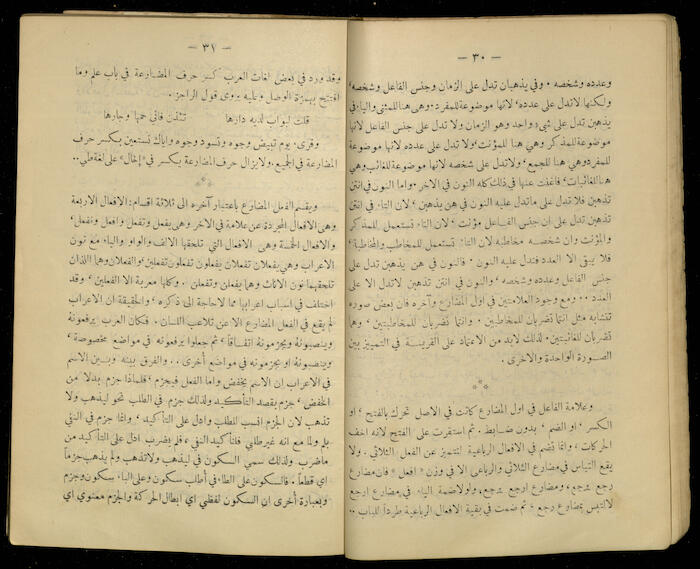 — ٣٠ —
وعدده وشخصه . وفي يذهبان تدل على الزمان وجنس الفاعل وشخصه،
ولكنها لا تدل على عدده، لانها موضوعة للمفرد، وهي هنا للمثنى، والياء في
يذهبن تدل على شيء واحد وهو الزمان ولا تدل على جنس الفاعل لانها
موضوعة للمذكر وهي هنا للمؤنث، ولا تدل على عدده لانها موضوعة
للمفرد وهي هنا للجمع، ولا تدل على شخصه لانها موضوعة للغائب وهي
هنا للغائبات، فاغنت عنها في ذلك كله النون في الآخر . واما النون في انتن
تذهبن فلا تدل على ما تدل عليه النون في هن يذهبن، لان التاء في انتن
تذهبن تدل على ان جنس الفاعل مؤنث، لان التاء تستعمل للمذكر
والمؤنث وان شخصه مخاطبة لان التاء تستعمل للمخاطب والمخاطبة،
فلا يبقى الا العدد فتدل عليه النون . فالنون في هن يذهبن تدل على
جنس الفاعل وعدده وشخصه، والنون في انتن تذهبن لا تدل الا على
العدد .. ومع وجود العلامتين في اول المضارع وآخره فان بعض صوره
تتشابه مثل انتما تضربان للمخاطبين . وانتما تضربان للمخاطبتين، وهما
تضربان للغائبتين، لذلك لابد من الاعتماد على القرينة في التمييز بين
الصورة الواحدة والاخرى .
***
وعلامة الفاعل في اول المضارع كانت في الاصل تحرك بالفتح، او
الكسر، او الضم، بدون ضابط، ثم استقرت على الفتح لانه اخف
الحركات، وانما تضم في الافعال الرباعية لتتميز عن الفعل الثلاثي . ولا
يقع التباس في مضارع الثلاثي والرباعي الا في وزن « افعل » فان مضارع
رجع يرجع، ومضارع ارجع يرجع، ولولا ضمة الياء في مضارع ارجع
لالتبس بمضارع رجع، ثم ضمت في بقية الافعال الرباعية طرداً للباب ..
— ٣١ —
وقد ورد في بعض لغات العرب كسر حرف المضارعة في باب علم وما
افتتح بهمزة الوصل وعليه يروى قول الراجز .
قلت لبواب لديه دارها تئذن فاني حمها وجارها
وقرىء، يوم تبيض وجوه وتسود وجوه واياك نستعين بكسر حرف
المضارعة في الجميع . ولا يزال حرف المضارعة يكسر في «إخال» على لغة طي ..
***
وينقسم الفعل المضارع باعتبار آخره الى ثلاثة اقسام: الافعال الاربعة
وهي الافعال المجردة عن علامة في الآخر وهي يفعل وتفعل وافعل ونفعل،
والافعال الخمسة وهي الافعال التي تلحقها الالف والواو والياء مع نون
الاعراب وهي يفعلان تفعلان يفعلون تفعلون تفعلين، والفعلان وهما اللذان
تلحقهما نون الاناث وهما يفعلن وتفعلن . وكلها معربة الا الفعلين، وقد
اختلف في اسباب اعرابها مما لا حاجة الى ذكره، والحقيقة ان الاعراب
لم يقع في الفعل المضارع الا عن تلاعب اللسان . فكان العرب يرفعونه
وينصبونه ويجزمونه اتفاقاً، ثم جعلوا يرفعونه في مواضع مخصوصة،
وينصبونه او يجزمونه في مواضع أخرى .. والفرق بينه وبين الاسم
في الاعراب إن الاسم يخفض واما الفعل فيجزم، فلماذا جزم بدلا من
الخفض، جزم بقصد التأكيد ولذلك جزم في الطلب نحو ليذهب ولا
تذهب لان الجزم انسب للطلب وادل على التأكيد، وانما جزم في النفي
بلم ولما مع انه غير طلبي فلتأكيد النفي، فلم يضرب ادل على التأكيد من
ماضرب . ولذلك سمي السكون في ليذهب ولا تذهب ولم يذهب جزماً
اي قطعاً . فالسكون على الطاء في أطلب سكون وعلى الباء سكون وجزم
وبعبارة أخرى ان السكون لفظي اي ابطال الحركة والجزم معنوي اي